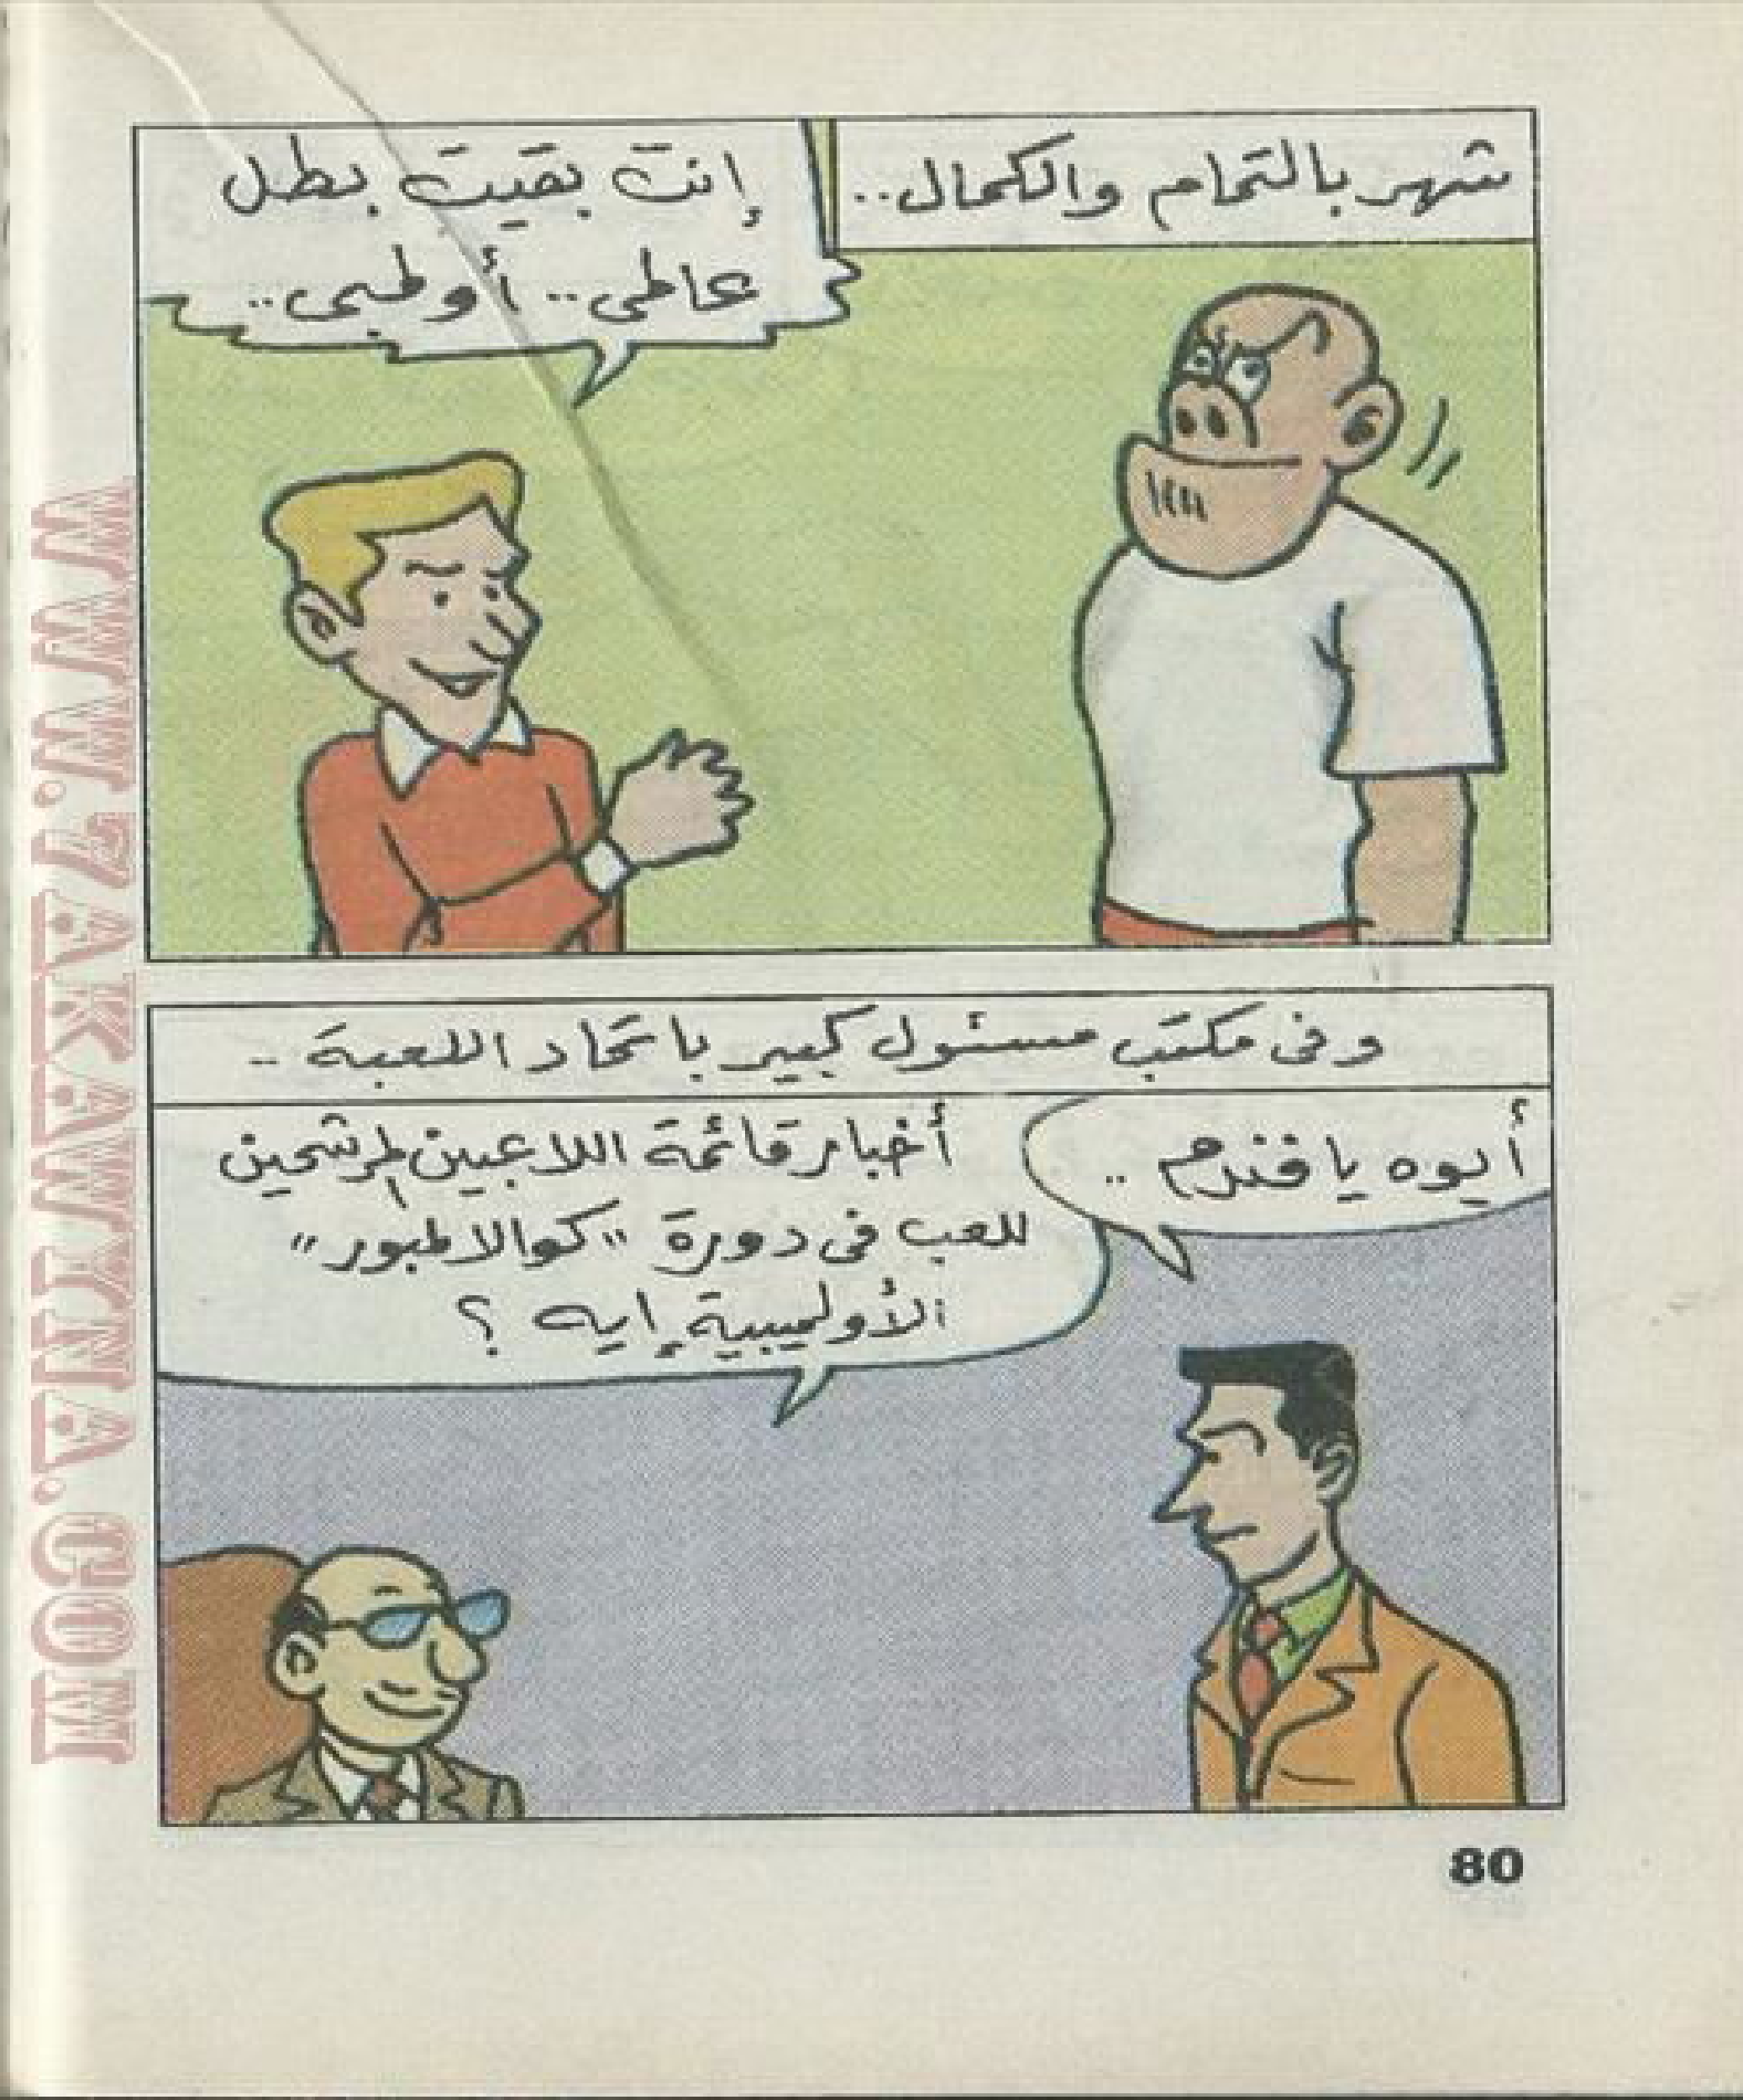 شهر بالتمام والكمال..
إنت بقيت بطل
عالمى.. أولمبى..
وفى مكتب مسئول كبير باتحاد اللعبة ..
أيوه يا فندم ..
أخبار قائمة اللاعبين المرشحين
للعب فى دورة "كوالالمبور"
الأوليمبية إيه ؟
80
WWW.ZAKAWINNA.COM